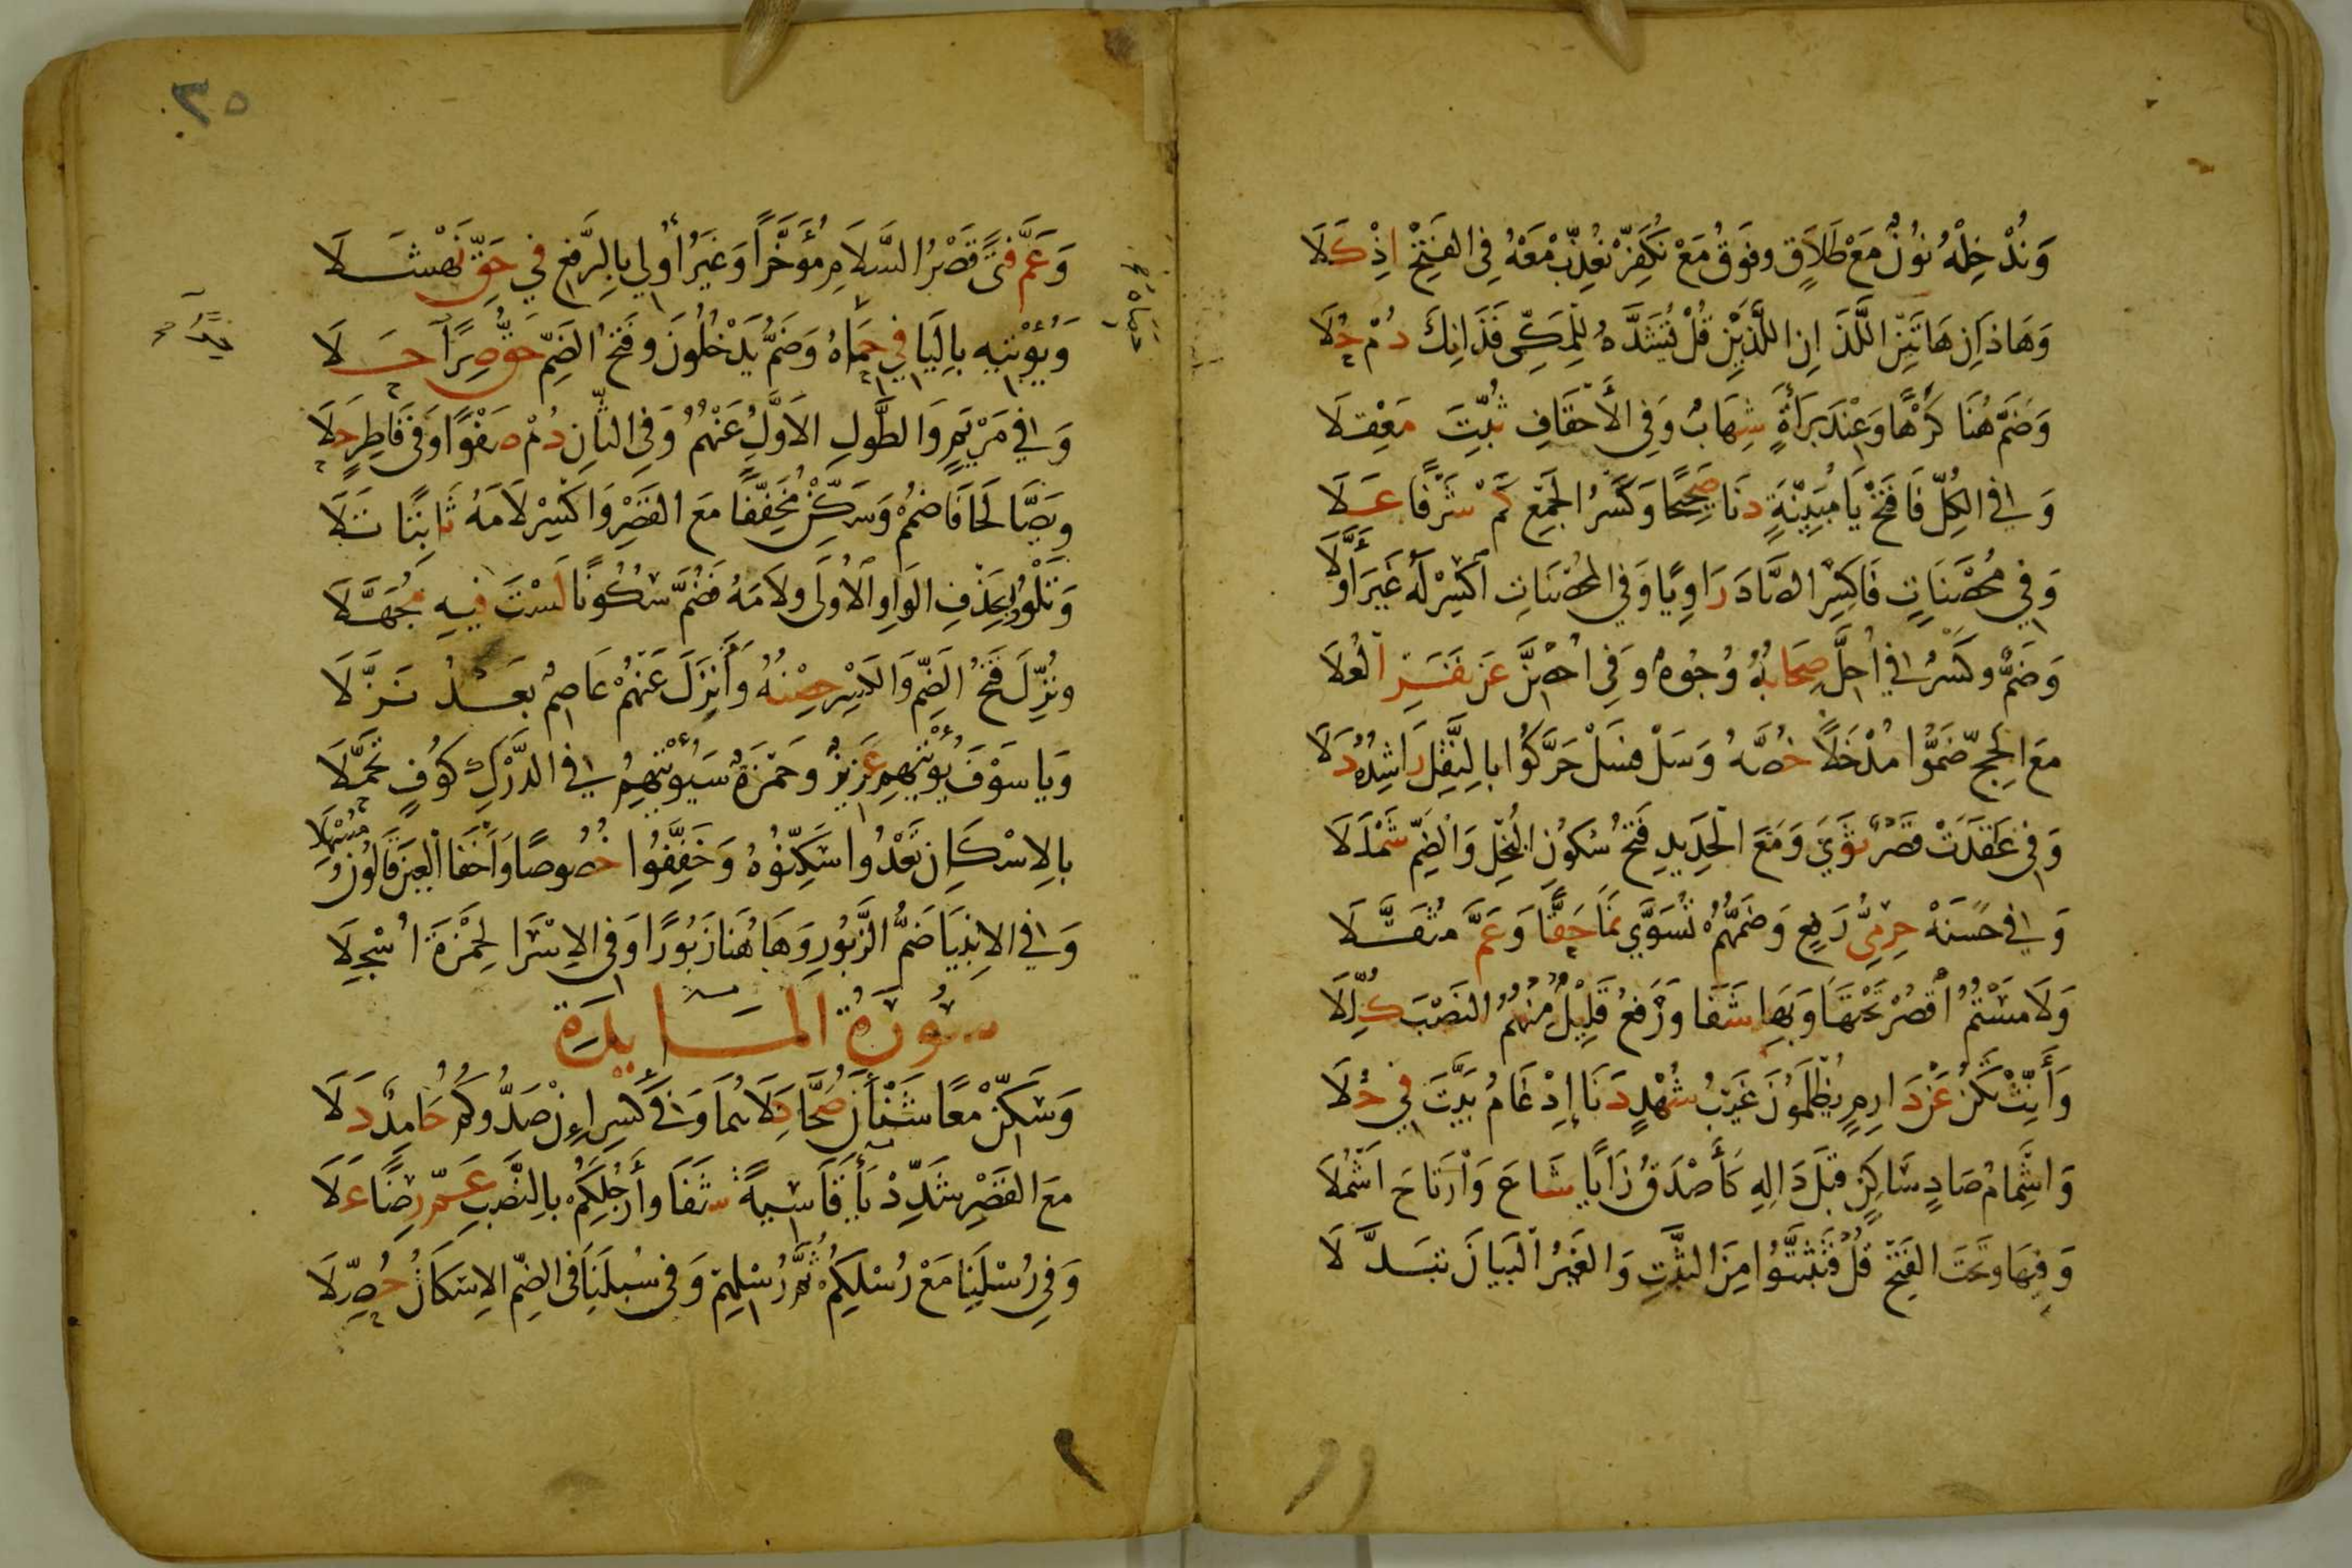 وَنُدْخِلْهُ نُوْنٌ مَعْ طَلَاقٍ وفَوْقُ مَعْ نُكَفِّرْ نُعَذِّبْ مَعْهُ فِى الفَتْحِ اِذْ كَلَا
وَهَاذَانِ هَاتَيْنِ اللَّذَانِ اللَّذَيْنِ قُلْ يُشَدَّدُ لِلْمَكِّى فَذَانِكَ دُمْ حُلَا
وَضَمَّ هُنَا كَرْهًا وَعِنْدَ بَرَأَةٍ شِهَابٌ وَفِى الأَحْقَافِ ثُبِّتَ مَعْقِلَا
وَفِي الكُلِّ فَافْتَحْ يَا مُبَيِّنَةٍ دَنَا صَحِيْحًا وَكَسْرُ الجَمْعِ كَمْ شَرْفًا عَلَا
وَفِي مُحْصَنَاتٍ فَاكْسِرِ الصَّادَ رَاوِيًا وَفِي المُحْصَنَاتِ اكْسِرْ لَهُ غَيْرَ أَوَّلَا
وَضَمٌّ وكَسْرٌ فِي اُحِلَّ صِحَابُهُ وُجُوهٌ وَفِى اُحْصِنَّ عَنْ نَفَرِ العُلَا
مَعَ الحَجِّ ضَمُّوا مُدْخَلًا خُصَّهُ وَسَلْ فسَلْ حَرَّكُوا بالنَّقْلِ رَاشِدُهُ دَلَا
وَفِى عَقَدَتْ قَصْرٌ ثَوَى وَمَعَ الْحَدِيدِ فَتْحُ سُكُونِ البُخْلِ وَالضَّمِّ شَمْلَلَا
وَفِي حَسَنَهْ حِرْمِىُّ رَفْعٍ وَضَمُّهُمْ تُسَوَّي نَمَا حَقًّا وَعَمَّ مُثَقَّلَا
وَلَامَسْتُمُ أقْصُرْ تَحْتَهَا وَبِهَا شَفَا وَرَفْعُ قَلِيْلٌ مِنْهُمُ النَصْبَ كُلِّلَا
وَأَنِّثْ تَكُنْ عَنْ دَارِمٍ يُظْلَمُونَ غَيْبُ شُهْدٍ دَنَا إِدْغَامُ بَيَّتَ فِي حُلَا
وَاشْمَامُ صَادٍ سَاكِنٍ قبْلَ دَالِهِ كَأَصْدَقُ زَايًا شَاعَ وَارْتَاحَ اَشْمُلَا
وَفِيهَا وتَحْتَ الفَتْحِ قُلْ فَتَثَبَّتُوا مِنَ الثَّبْتِ وَالغَيْرُ البَيَانَ تبَدَّلَا
٣٥
وَعَمَّ فتًى قَصْرُ السَّلَامِ مُؤَخَّرًا وَغَيْرُ أُولِي بِالرَّفْعِ فِي حَقِّ نَهْشَلَا
وَيُؤْتيهِ بِاليَا فِي حِمَاهُ وَضَمُّ يَدْخُلُونَ وفَتْحُ الضَمِّ حَقُّ صِرًا حَلَا
وَفِي مَرْيَمٍ وَالطَّولِ الاَوَّلُ عَنْهُمُ وَفِى الثَّانِ دُمْ صَفْوًا وَفِى فَاطِرٍ حَلَا
ويَصَّالَحَا فَاضْمُمْ وَسَكِّنْ مُخَفِّفًا مَعَ القَصْرِ وَاكْسِرْ لَامَهُ ثَابِتًا تَلَا
وَتَلْوُوا بِحَذْفِ الوَاوِ الْاُولَى ولَامَهُ فَضُمَّ سُكُونًا لَسْتَ فِيهِ مُجَهَّلَا
ونُزِّلَ فَتْحُ الضَمِّ وَالكَسْرِ حِصْنُهُ وَأُنْزِلَ عَنْهُمْ عَاصِمٌ بَعْدُ نَزَّلَا
وَيَا سَوْفَ يُؤْتيهِمْ عَزِيزٌ وحَمْزَةٌ سَيُؤْتيهِمُ فِي الدَّرْكِ كُوْفٍ تَحَمَّلَا
بالِاسْكَانِ تَعْدُوا سَكِّنُوهُ وَخَفِّفُوا خُصُوصًا وَاَخْفَا العَيْنَ قَالُونُ مُسْهِلَا
وَفِي الاَنْبِيَا ضَمُّ الزَّبُورِ وَهَاهُنَا زَبُورًا وَفِى الاِسْرَا لِحَمْزَةَ اُسْجِلَا
سُورَةُ المَايِدَة
وَسَكِّنْ مَعًا شَنْأَنُ صَحَّا كِلَاهُمَا وَفِى كَسْرِ اِنْ صَدُّوكُمُ حَامِدٌ دَلَا
مَعَ القَصْرِ شَدِّدْ يَاءَ قَاسِيَةً شَفَا وأَرْجُلَكُمْ بِالنَّصْبِ عَمَّ رِضًا عَلَا
وَفِى رُسْلَنَا مَعْ رُسْلِكُمْ ثُمَّ رُسْلِهِمْ وَفِى سُبْلَنَا فِى الضَمِّ الاِسْكَانُ حُصِّلَا